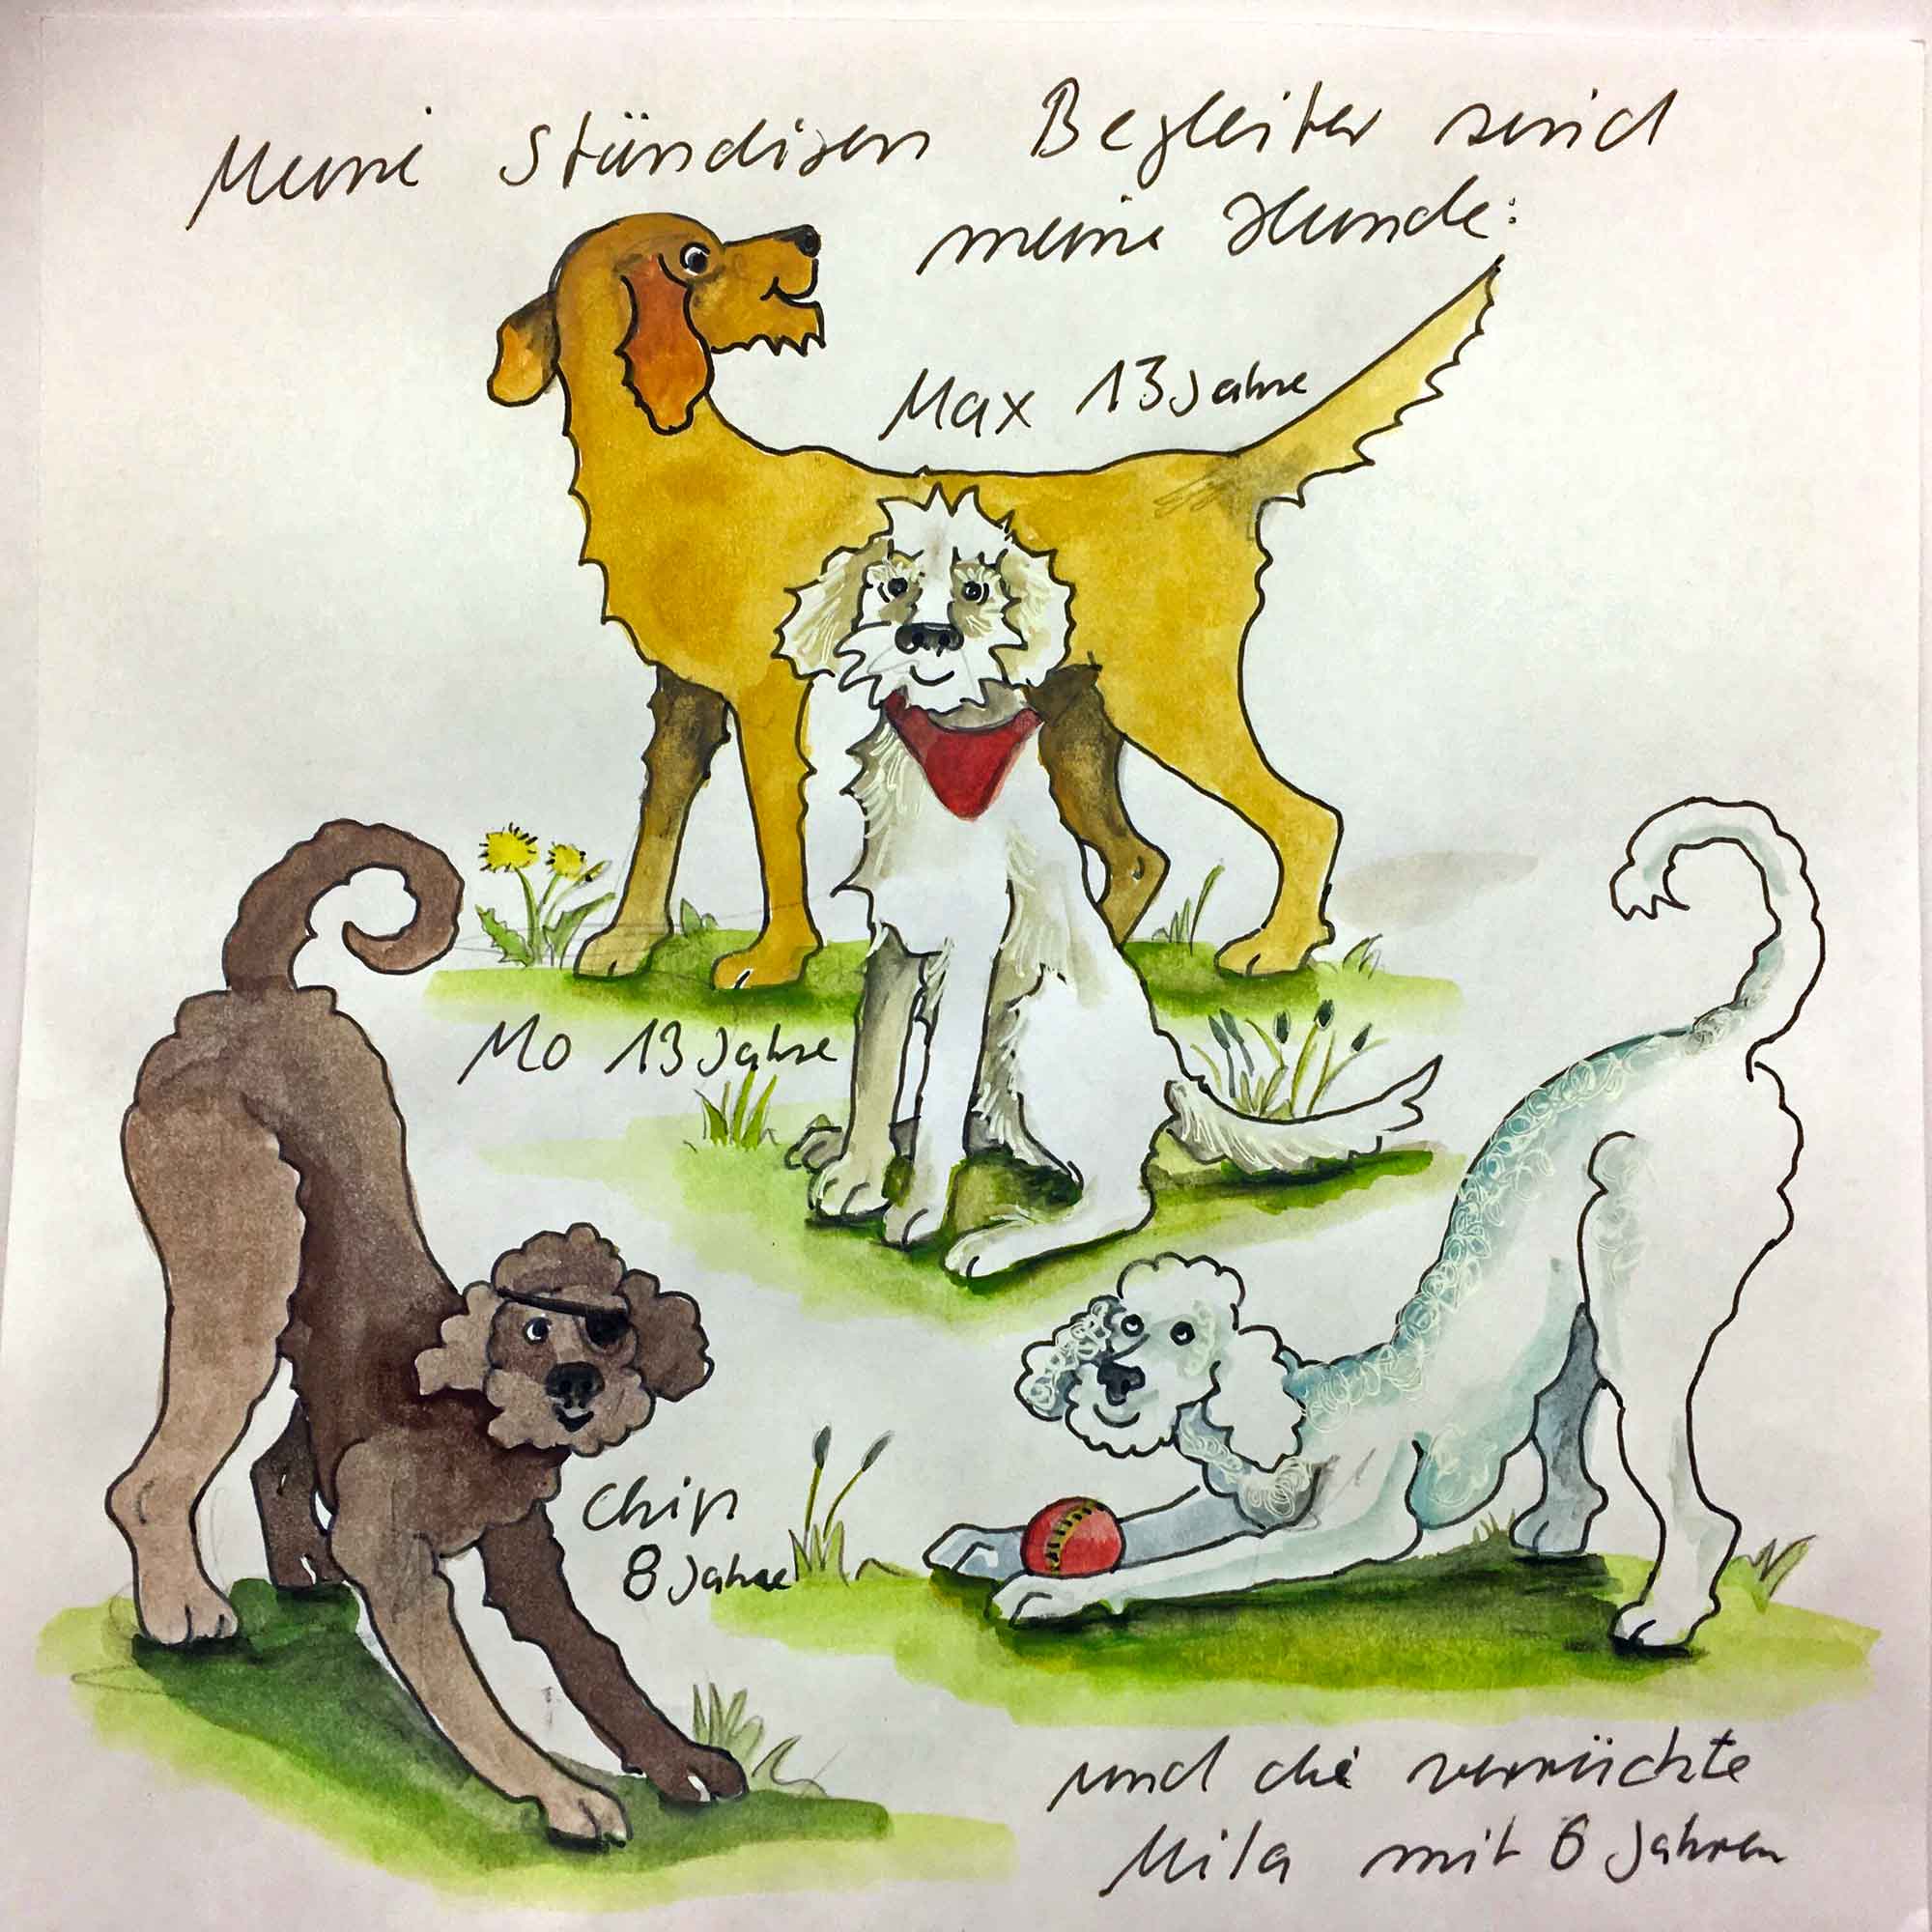 Meine ständigen Begleiter sind
meine Hunde:
Max 13 Jahre
Mo 13 Jahre
Chip
8 Jahre
und die verrückte
Mila mit 6 Jahren